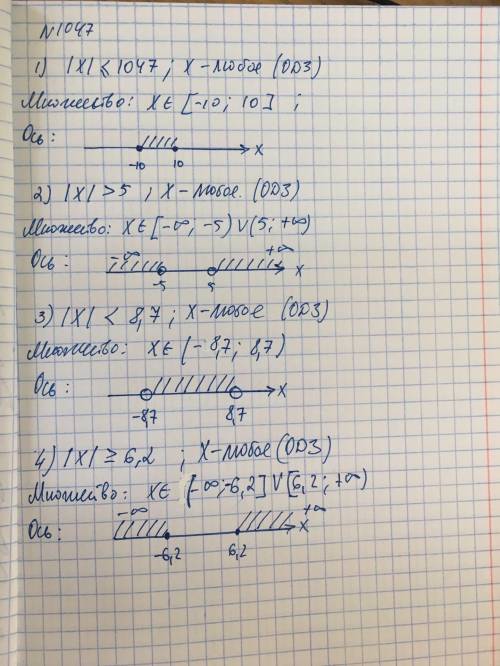 №1047
1) |X| ⩽ 1047 ; X - любое (ОДЗ)
Множество: X ∈ [-10; 10] ;
Ось:
-10 10 X
2) |X| > 5 ; X - любое. (ОДЗ)
Множество: X ∈ [-∞; -5) ∨ (5; +∞)
Ось: -∞ +∞
-5 5 X
3) |X| < 8,7 ; X - любое (ОДЗ)
Множество: X ∈ (-8,7; 8,7)
Ось: X
-8,7 8,7
4) |X| ≥ 6,2 ; X - любое (ОДЗ)
Множество: X ∈ [-∞; -6,2] ∨ [6,2; +∞)
Ось: -∞ +∞ X
-6,2 6,2